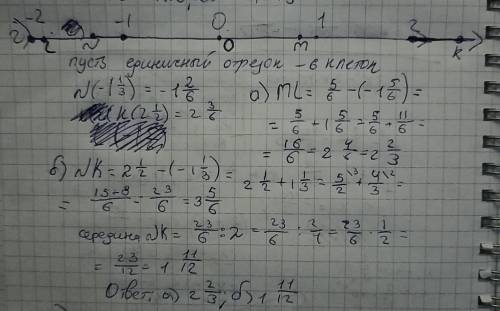 -2 -1 0 1 2
L N O M K
пусть единичный отрезок - 6 клеток
N(-1 1/3) = -1 2/6
K(2 1/2) = 2 3/6
а) ML = 5/6 - (-1 5/6) =
= 5/6 + 1 5/6 = 5/6 + 11/6 =
= 16/6 = 2 4/6 = 2 2/3
б) NK = 2 1/2 - (-1 1/3) = 2 1/2 + 1 1/3 = 5/2 \3 + 4/3 \2 =
= 15+8/6 = 23/6 = 3 5/6
середина NK = 23/6 : 2 = 23/6 : 2/1 = 23/6 · 1/2 =
= 23/12 = 1 11/12
Ответ: а) 2 2/3; б) 1 11/12